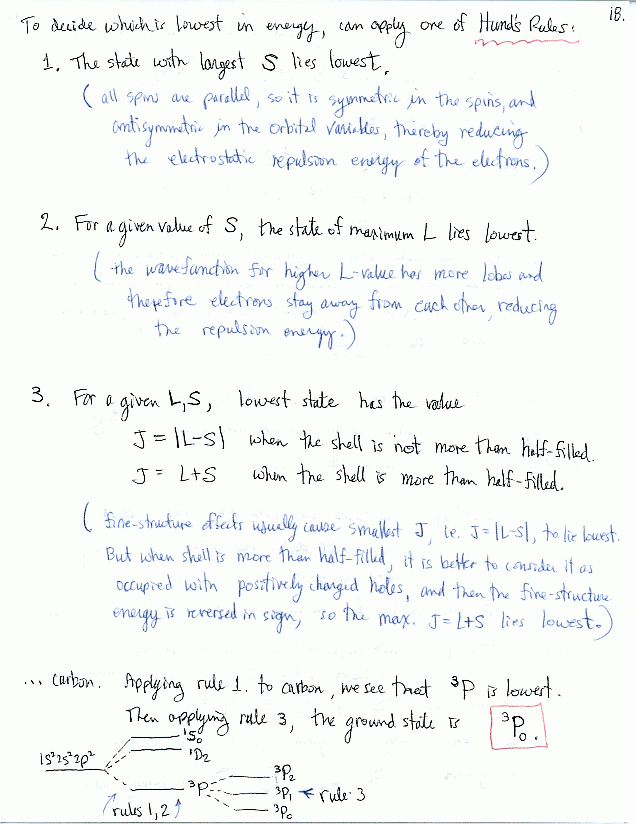 18.
To decide which is lowest in energy, can apply one of Hund's Rules:
1. The state with largest S lies lowest.
( all spins are parallel, so it is symmetric in the spins, and
antisymmetric in the orbital variables, thereby reducing
the electrostatic repulsion energy of the electrons.)
2. For a given value of S, the state of maximum L lies lowest.
( the wavefunction for higher L-value has more lobes and
therefore electrons stay away from each other, reducing
the repulsion energy.)
3. For a given L,S, lowest state has the value
J = |L-S| when the shell is not more than half-filled.
J = L+S when the shell is more than half-filled.
( fine-structure effects usually cause smallest J, ie. J=|L-S|, to lie lowest.
But when shell is more than half-filled, it is better to consider it as
occupied with positively charged holes, and then the fine-structure
energy is reversed in sign, so the max. J=L+S lies lowest.)
... carbon. Applying rule 1. to carbon, we see that ³P is lowest.
Then applying rule 3, the ground state is ³P₀.
¹S₀
1S²2S²2P² ¹D₂
³P ³P₂
³P₁ ← rule 3
rules 1,2 ↑ ³P₀